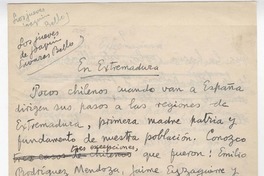 Los jueves
Joaquín
Bello
Los jueves
de Joaquín
Edwards Bello
En Extremadura
Pocos chilenos cuando van a España
dirigen sus pasos a las regiones de
Extremadura, primera madre patria y
fundamento de nuestra población. Conozco
tres casos de chilenos tres excepciones, que fueron: Emilio
Rodríguez Mendoza, Jaime Eyzaguirre y